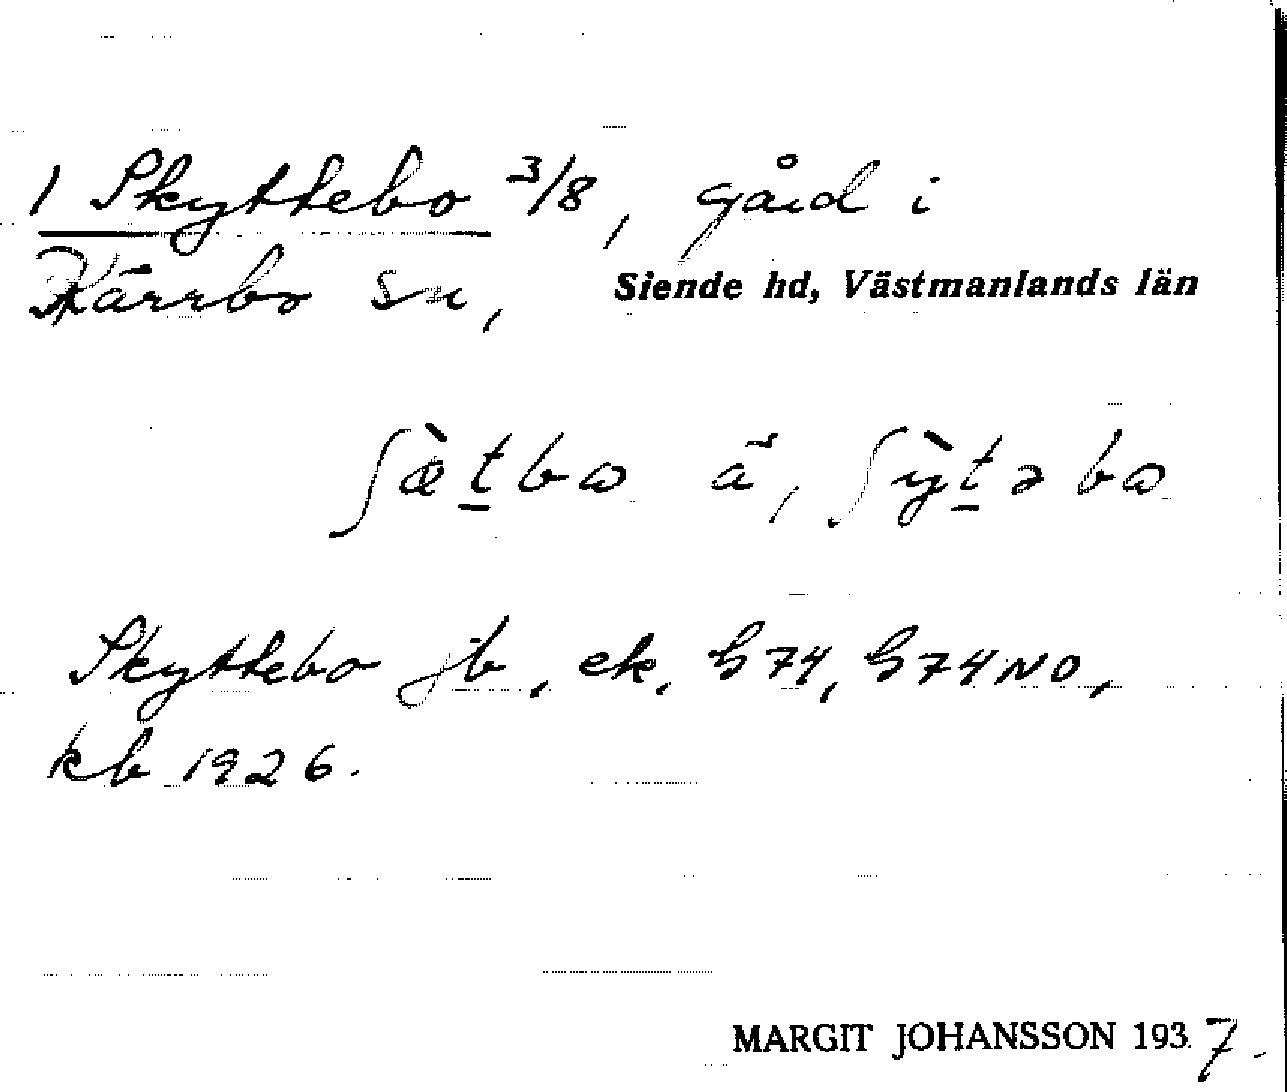 1 Skyttebo 3/8, gård i
Kärrbo sn, Siende hd, Västmanlands län
ʃæ̀tbω ä̆, ʃỳtəbω
Skyttebo jb, ek, G74, G74NO,
kb 1926.
MARGIT JOHANSSON 1937.